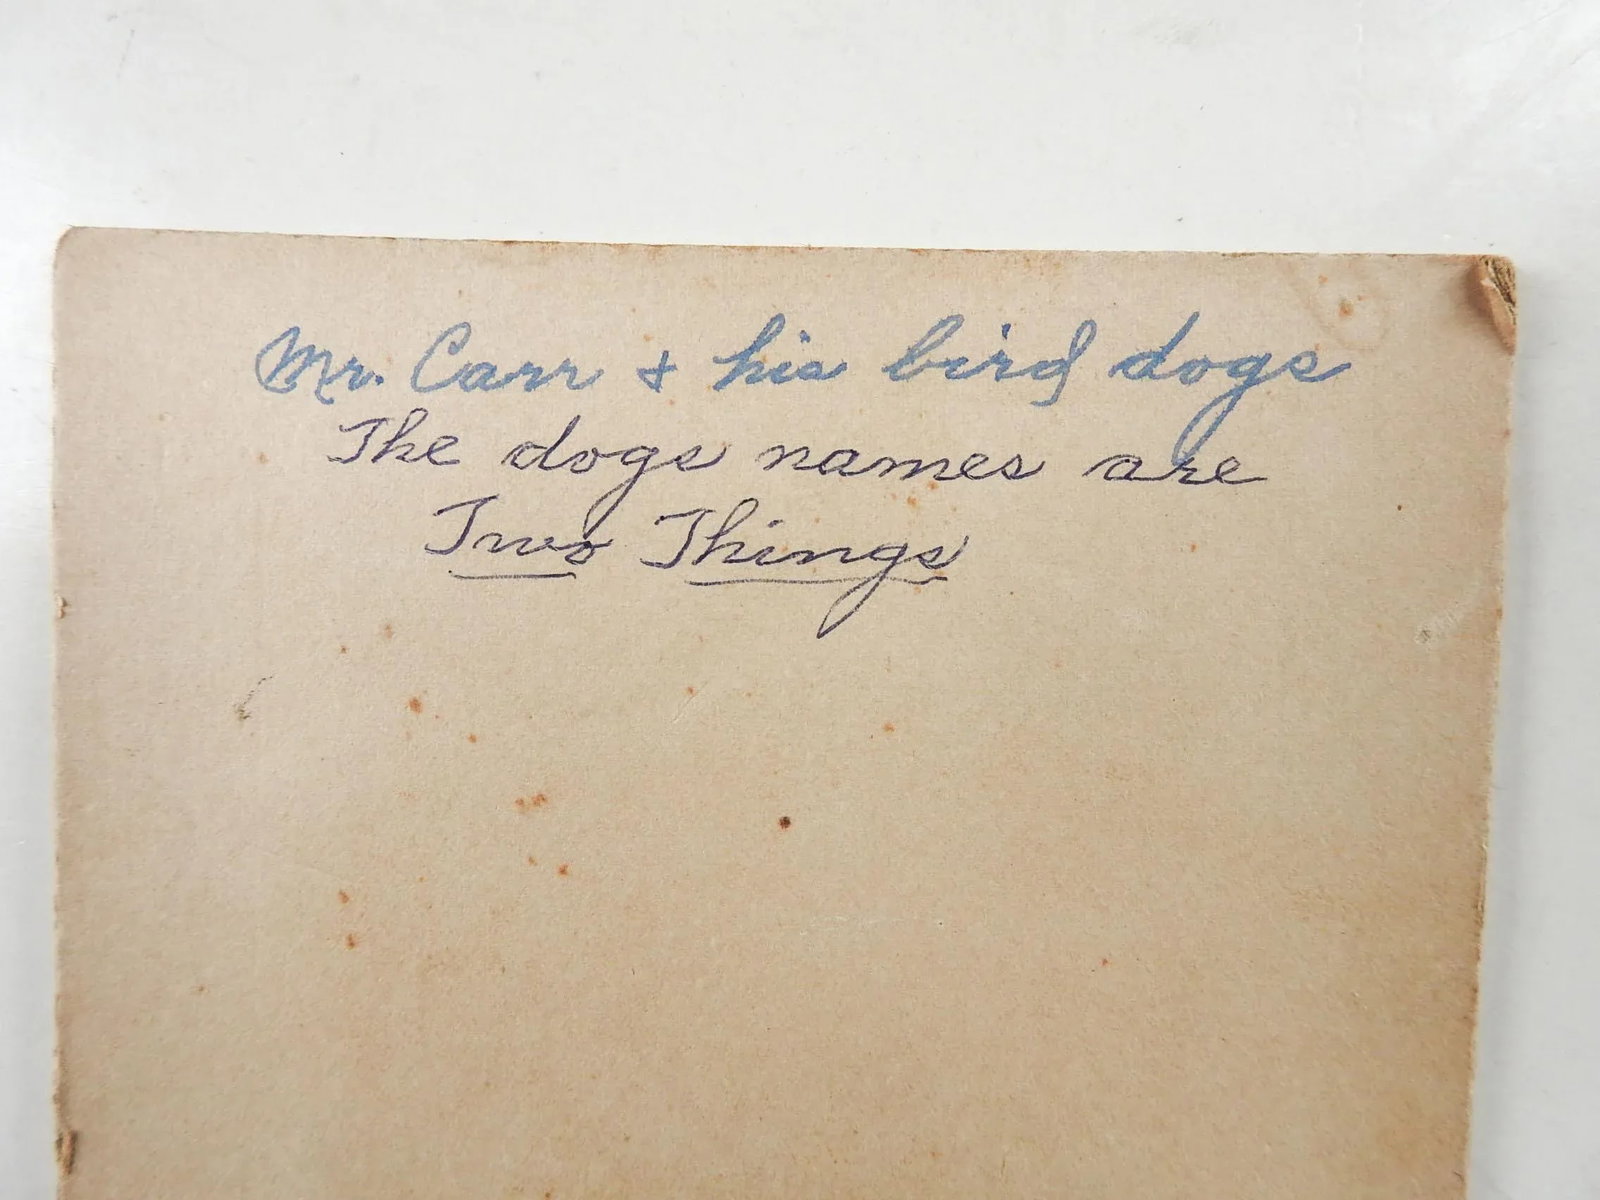 Mr. Carr & his bird dogs
The dogs names are
Two Things